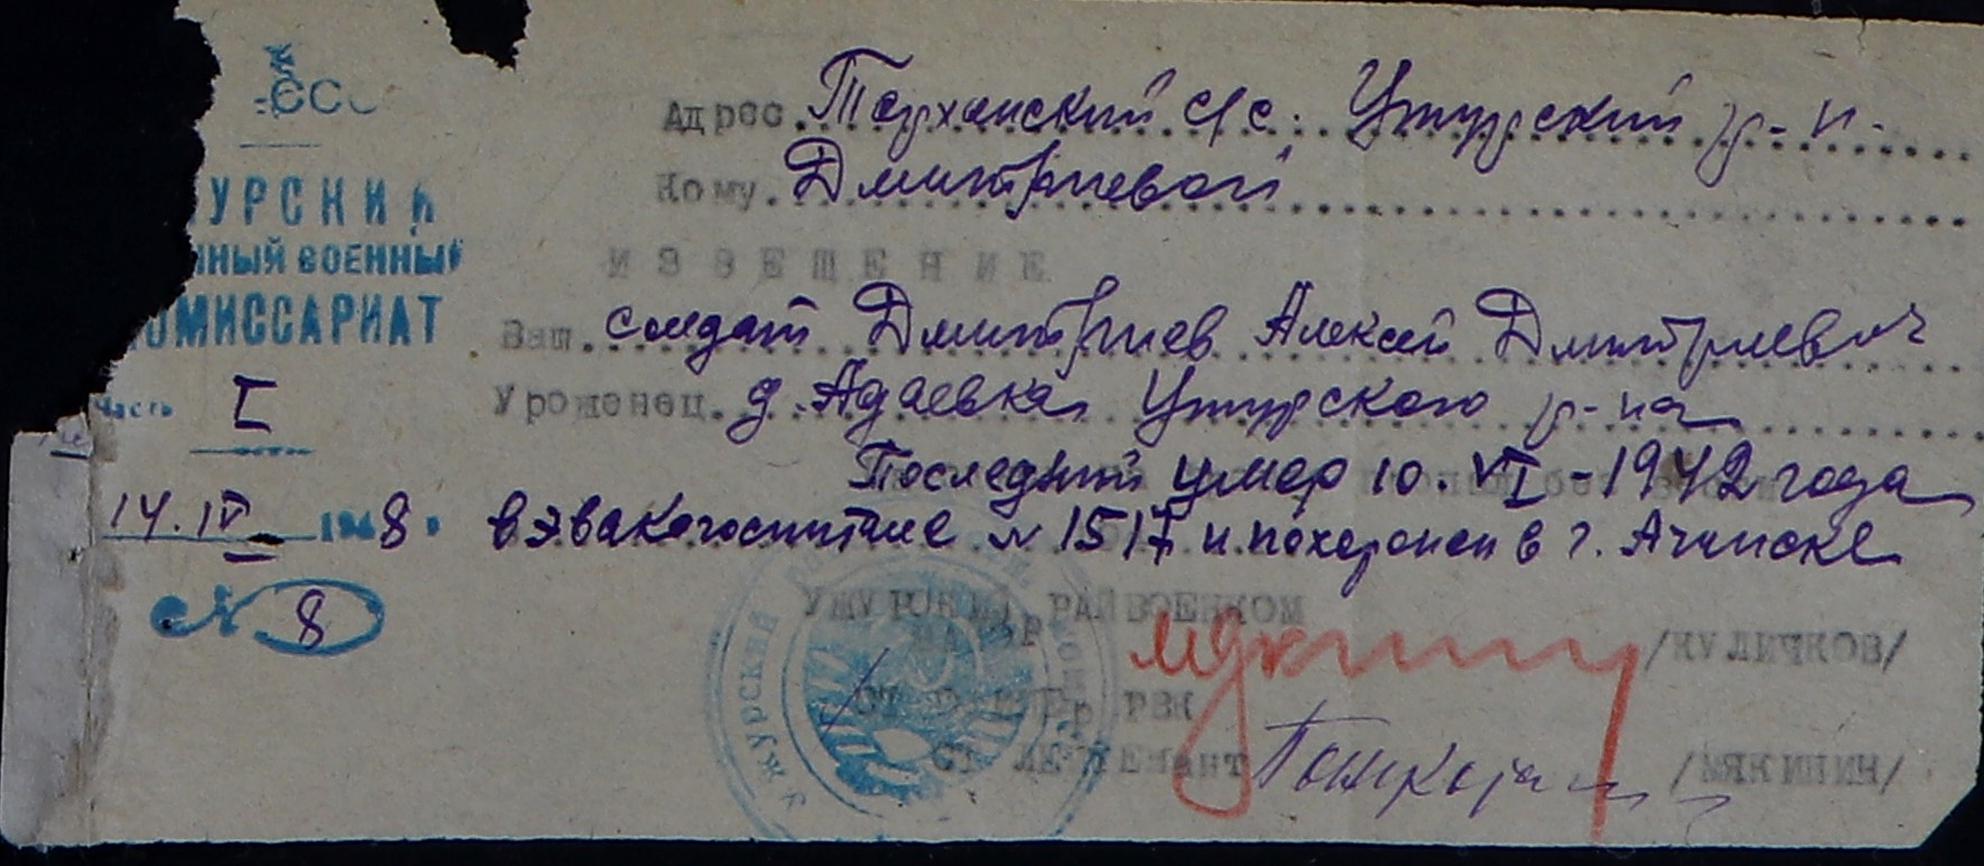 ССС
УРСКИЙ
ННЫЙ ВОЕННЫЙ
ОМИССАРИАТ
Часть I
14.IV 1948.
№ 8
Адрес. Тарханский с/с. Ужурский р-н.
Кому. Дмитриевой
ИЗВЕЩЕНИЕ
Ваш. солдат Дмитриев Алексей Дмитриевич
Уроженец. д. Адаевка Ужурского р-на
Последний умер 10. VI - 1942 года
в эвакогоспитале № 1517 и похоронен в г. Ачинске
УЖУРСКИЙ РАЙВОЕНКОМ
МАЙОР /КУЛИЧКОВ/
РВК
СТ ЛЕЙТЕНАНТ /МЯКИНИН/
Ужурский